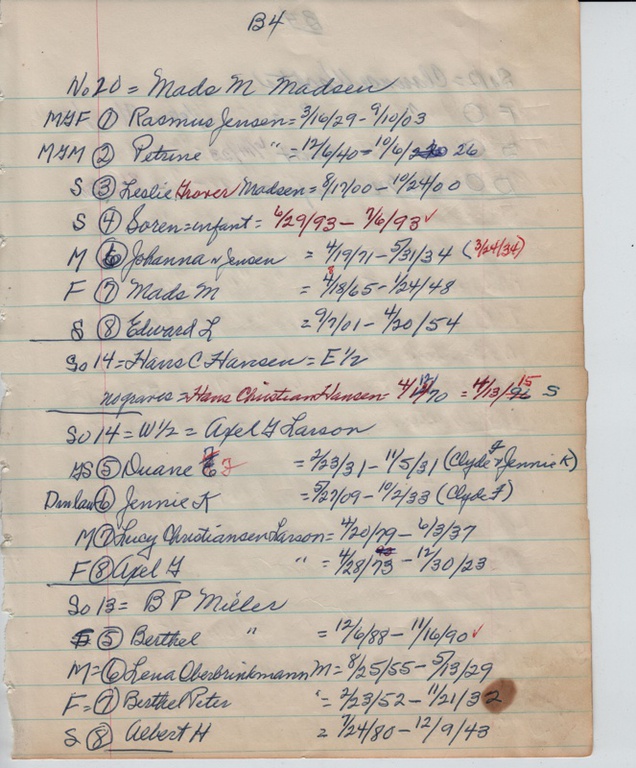 B4
No 20 = Mads M Madsen
MGF ① Rasmus Jensen = 3/16/29 - 9/10/03
MGM ② Petrine " = 12/6/40 - 10/6/ 26
S ③ Leslie Grover Madsen = 8/17/00 - 10/24/00
S ④ Soren = infant = 6/29/93 - 7/6/93 ✓
M ⑥ Johanna Jensen = 4/19/71 - 5/31/34 (3/24/34)
F ⑦ Mads M = /18/65 - 1/24/48
S ⑧ Edward L = 9/7/01 - 4/20/54
So 14 = Hans C Hansen = E 1/2
no graves = Hans Christian Hansen = 4/ /70 = 4/13/ 15 S
So 14 = W 1/2 = Axel G Larson
GS ⑤ Duane F = 2/23/31 - 11/5/31 (Clyde F & Jennie K)
Dinlaw ⑥ Jennie K = 5/27/09 - 10/2/33 (Clyde F)
M ⑦ Lucy Christiansen Larson = 4/20/79 - 6/3/37
F ⑧ Axel G " = 4/28/73 - 12/30/23
So 13 = B P Miller
⑤ Berthel " = 12/6/88 - 11/16/90 ✓
M = ⑥ Lena Oberbrinkmann M = 8/25/55 - 5/13/29
F = ⑦ Berthel Peter " = 2/23/52 - 11/21/32
S ⑧ Albert H = 7/24/80 - 12/9/43